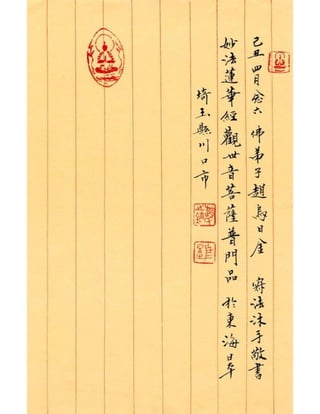 己丑四月念六 佛弟子趙 日金 法沐手敬書
妙法蓮華經觀世音菩薩普門品 於東海日本
埼玉縣川口市